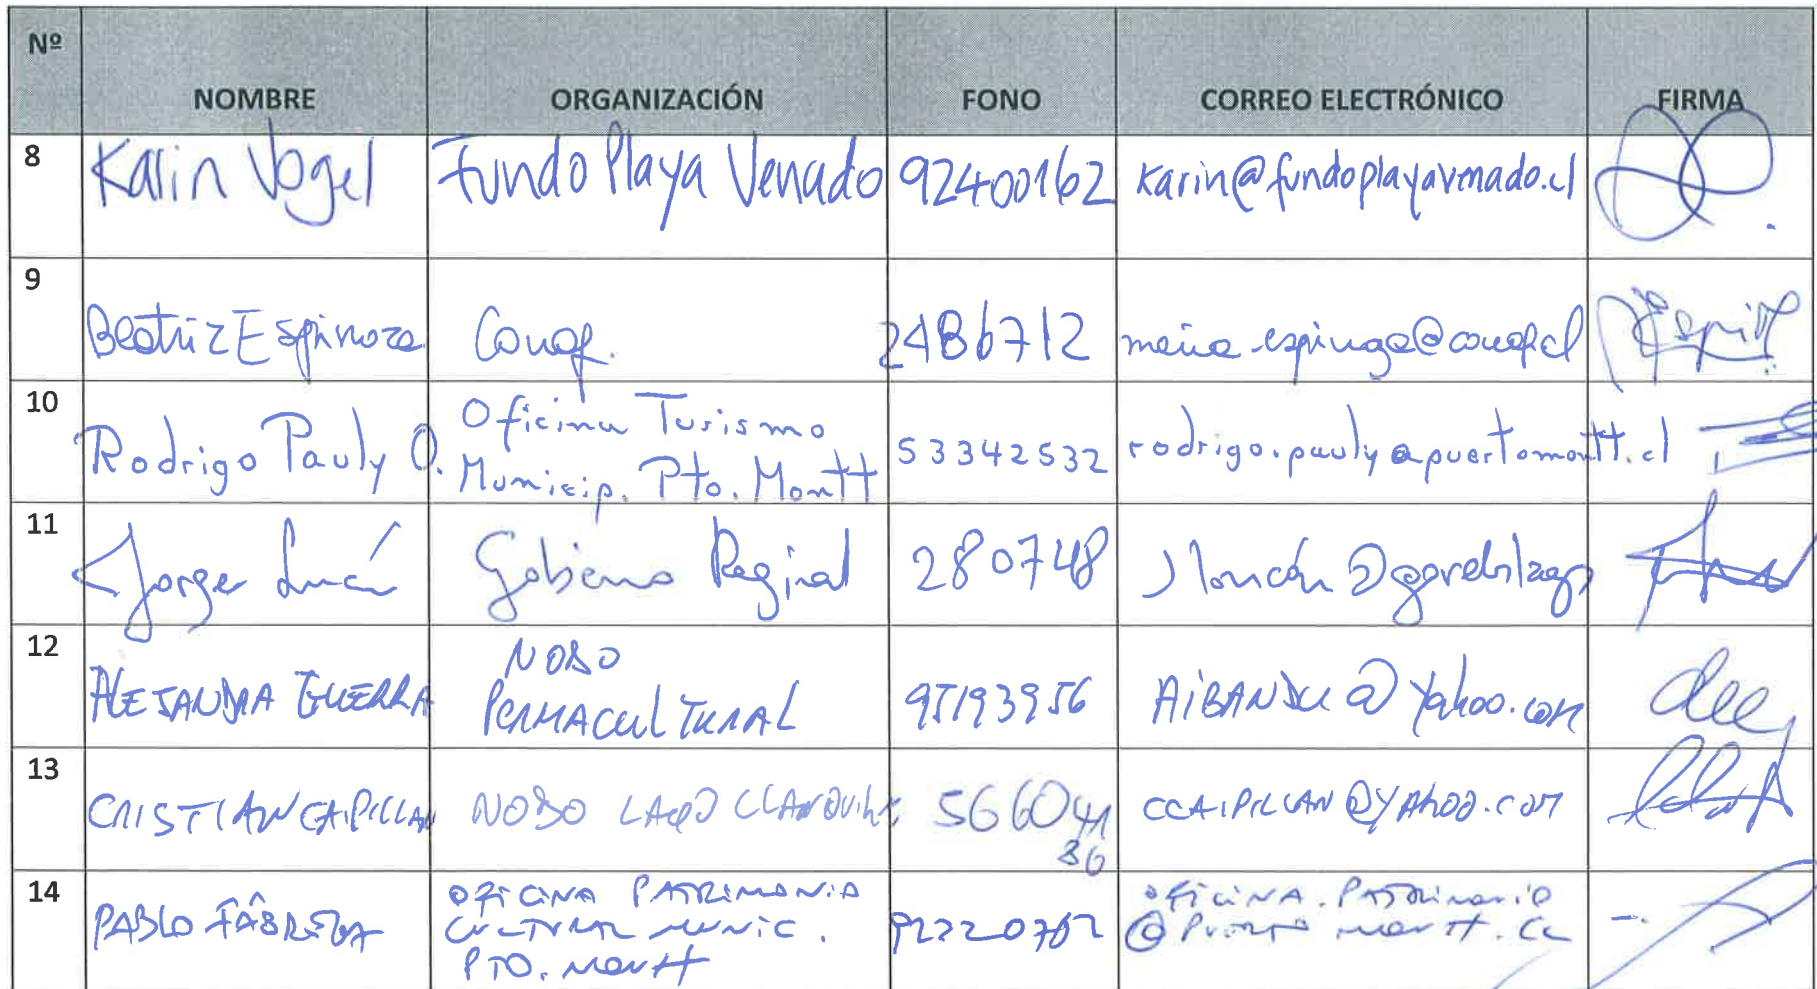 Nº NOMBRE ORGANIZACIÓN FONO CORREO ELECTRÓNICO FIRMA
8 Karin Vogel Fundo Playa Venado 92400162 Karin@fundoplayavenado.cl
9 Beatriz Espinoza Conaf. 2486712
10 Rodrigo Pauly O. Oficina Turismo
Municip. Pto. Montt 53342532 rodrigo.pauly@puertomontt.cl
11 Jorge Gobierno Regional 280748
12 ALEJANDRA GUERRA NODO
PERMACULTURAL 95193956 AIBANDU@yahoo.com
13 CRISTIAN CAIPILLAN NODO LAGO LLANQUIHUE 566041
86 CCAIPILLAN@YAHOO.COM
14 PABLO FÁBREGA OFICINA PATRIMONIO
CULTURAL MUNIC.
PTO. MONTT 92220762 OFICINA.PATRIMONIO
@PUERTO MONTT.CL